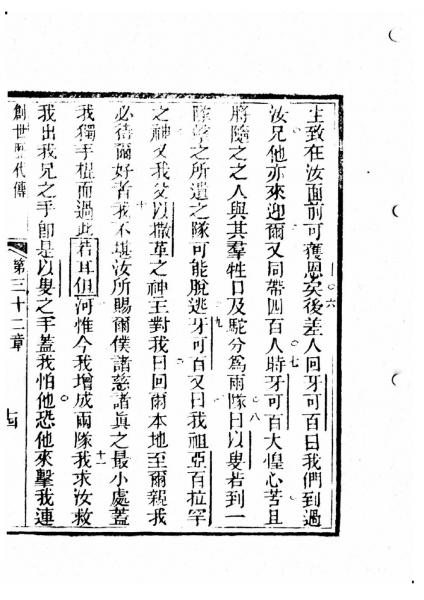 主致在汝面前可獲恩矣後差人回牙可百曰我們到過
汝兄他亦來迎爾又同帶四百人時牙可百大惶心苦且
將隨之之人與其羣牲口及駝分為兩隊曰以叟若到一
隊擊之所遺之隊可能脫逃牙可百又曰我祖亞百拉罕
之神又我父以撒革之神至對我曰回爾本地至爾親我
必待爾好者我不堪汝所賜爾僕諸慈諸真之最小處蓋
我獨手棍而過此若耳但河惟今我增成兩隊我求汝救
我出我兄之手即是以叟之手蓋我怕他恐他來擊我連
創世歷代傳 第三十二章
六
七
八
九
十
十一